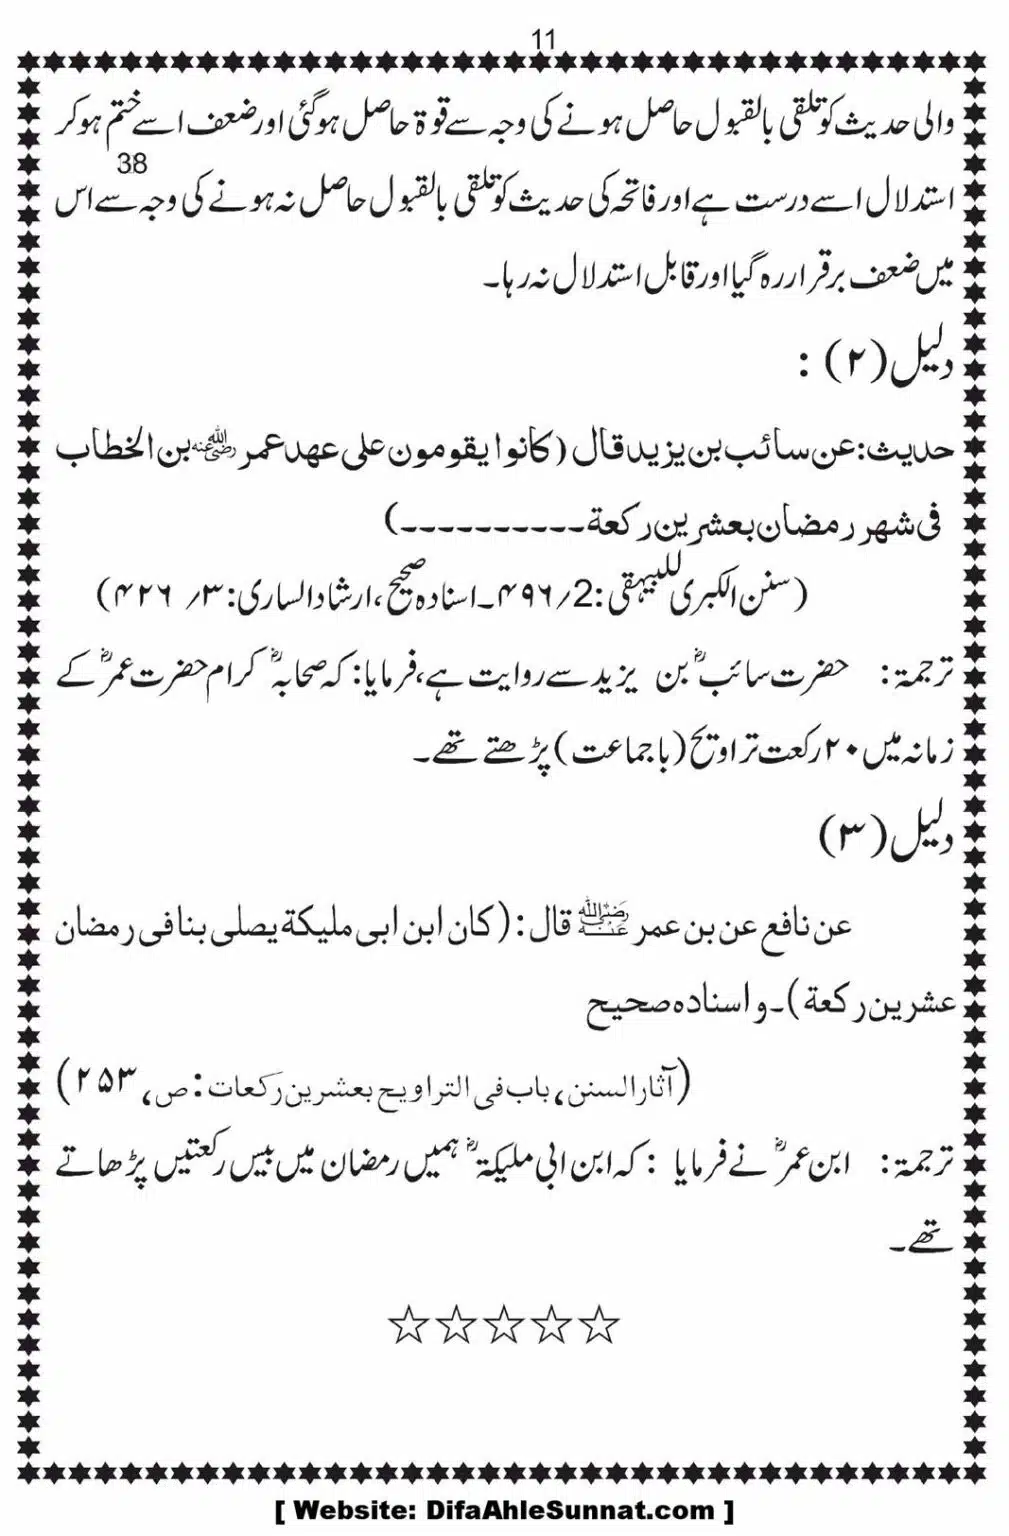 11
والی حدیث کو تلقی بالقبول حاصل ہونے کی وجہ سے قوۃ حاصل ہوگئی اور ضعف اسے ختم ہوکر
38
استدلال اسے درست ہے اور فاتحہ کی حدیث کو تلقی بالقبول حاصل نہ ہونے کی وجہ سے اس
میں ضعف برقرار رہ گیا اور قابل استدلال نہ رہا۔
دلیل (۲) :
حدیث: عن سائب بن یزید قال (کانوا یقومون علی عهد عمر رضی اللہ عنہ بن الخطاب
فی شهر رمضان بعشرین رکعة۔۔۔۔۔۔۔۔۔۔)
(سنن الکبری للبیہقی :2؍۴۹۶۔ اسنادہ صحیح ،ارشاد الساری: ۳؍ ۴۲۶)
ترجمۃ: حضرت سائبؓ بن یزید سے روایت ہے، فرمایا: کہ صحابہؓ کرام حضرت عمرؓ کے
زمانہ میں ۲۰ رکعت تراویح (باجماعت) پڑھتے تھے۔
دلیل (۳)
عن نافع عن بن عمر رضی اللہ عنہ قال : (کان ابن ابی ملیکة یصلی بنا فی رمضان
عشرین رکعة)۔ و اسناده صحیح
(آثار السنن، باب فی التراویح بعشرین رکعات : ص، ۲۵۳)
ترجمۃ: ابن عمرؓ نے فرمایا : کہ ابن ابی ملیکۃؓ ہمیں رمضان میں بیس رکعتیں پڑھاتے
تھے۔
☆☆☆☆☆
[ Website: DifaAhleSunnat.com ]